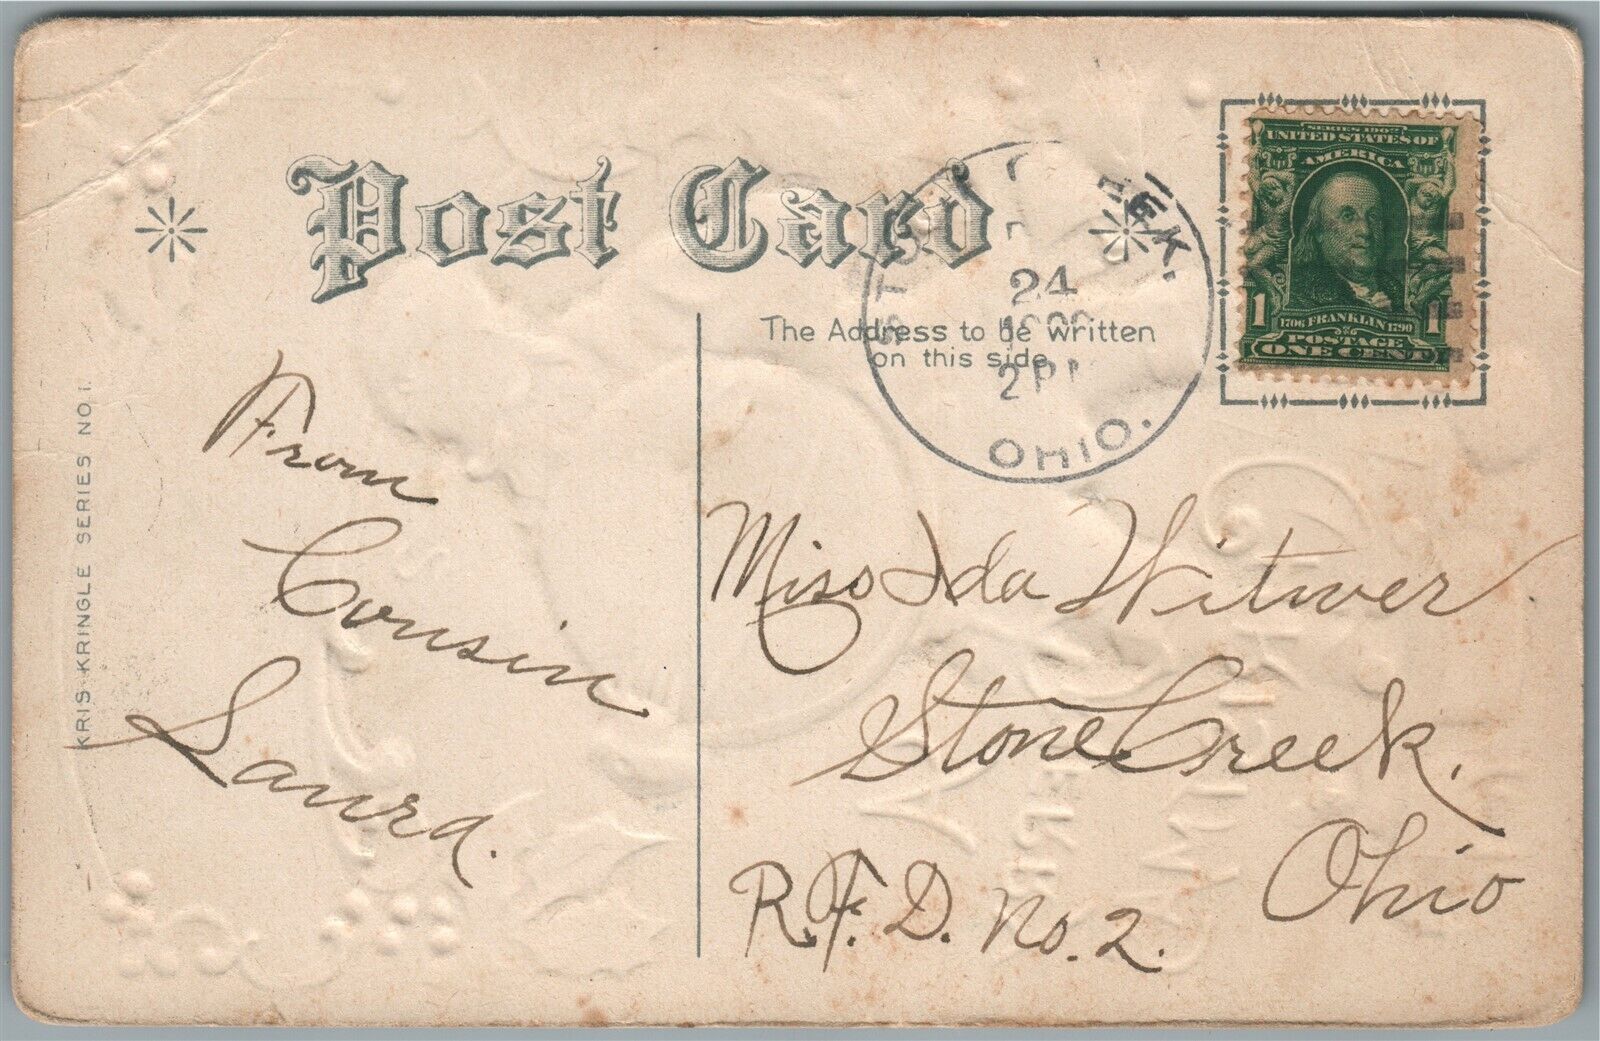 Post Card
SERIES 1902
UNITED STATES OF
AMERICA
1 1
1706 FRANKLIN 1790
POSTAGE
ONE CENT
EK.
24
2 P
OHIO.
The Address to be written
on this side
KRIS KRINGLE SERIES NO. 1.
From
Cousin
Laura.
Miss Ida Witwer
Stone Creek.
Ohio
R.F.D. No. 2.